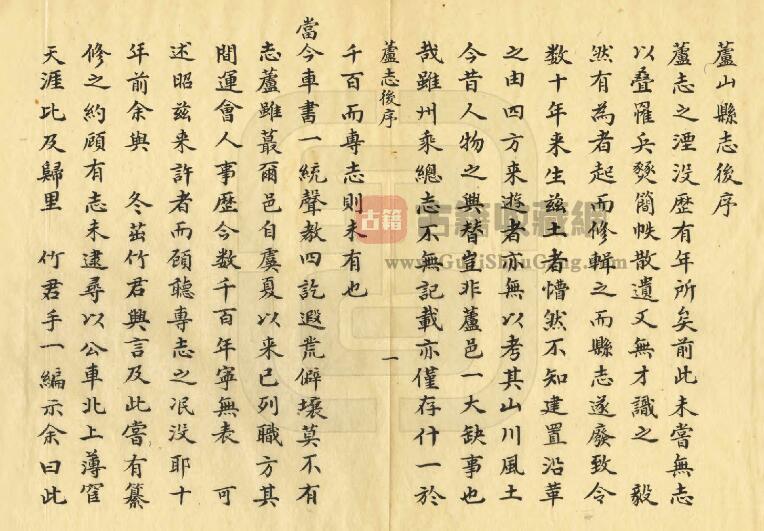 蘆山縣志後序
蘆志之湮没歷有年所矣前此未嘗無志
以叠罹兵燹簡帙散遺又無才識之　毅
然有為者起而修輯之而縣志遂廢致令
数十年来生茲土者懵然不知建置沿革
之由四方来遊者亦無以考其山川風土
今昔人物之興替豈非蘆邑一大缺事也
哉雖州乘總志不無記載亦僅存什一於
蘆志後序
一
千百而專志則未有也
當今車書一統聲教四訖遐荒僻壤莫不有
志蘆雖蕞爾邑自虞夏以来已列職方其
間運會人事歷今数千百年寧無表　可
述昭茲来許者而顧聽專志之泯没耶十
年前余與　冬茁竹君興言及此嘗有纂
修之約顧有志未逮尋以公車北上薄宦
天涯比及歸里　竹君手一編示余曰此
古籍
古籍收藏網
www.GuJiShouCang.com